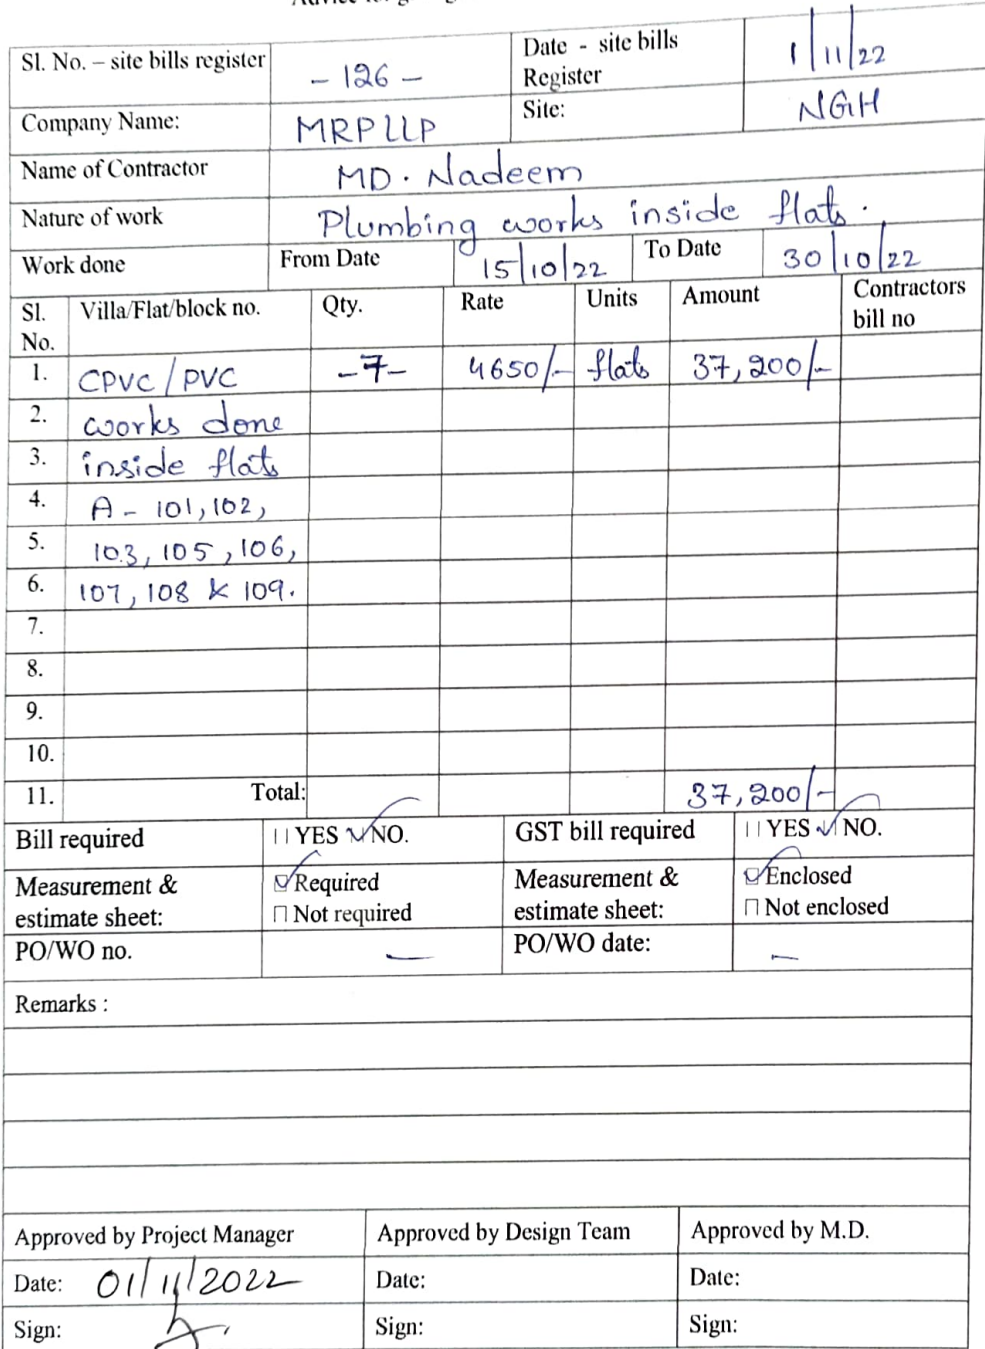 Sl. No. – site bills register - 126 - Date - site bills Register 1/11/22
Company Name: MRPLLP Site: NGH
Name of Contractor MD. Nadeem
Nature of work Plumbing works inside flats.
Work done From Date 15/10/22 To Date 30/10/22
Sl. No. Villa/Flat/block no. Qty. Rate Units Amount Contractors bill no
1. CPVC / PVC -7- 4650/- flats 37,200/-
2. works done
3. inside flats
4. A - 101, 102,
5. 103, 105, 106,
6. 107, 108 & 109.
7.
8.
9.
10.
11. Total: 37,200/-
Bill required YES NO. GST bill required YES NO.
Measurement & estimate sheet: Required Measurement & estimate sheet: Enclosed
Not required Not enclosed
PO/WO no. — PO/WO date: -
Remarks :
Approved by Project Manager Approved by Design Team Approved by M.D.
Date: 01/11/2022 Date: Date:
Sign: Sign: Sign: